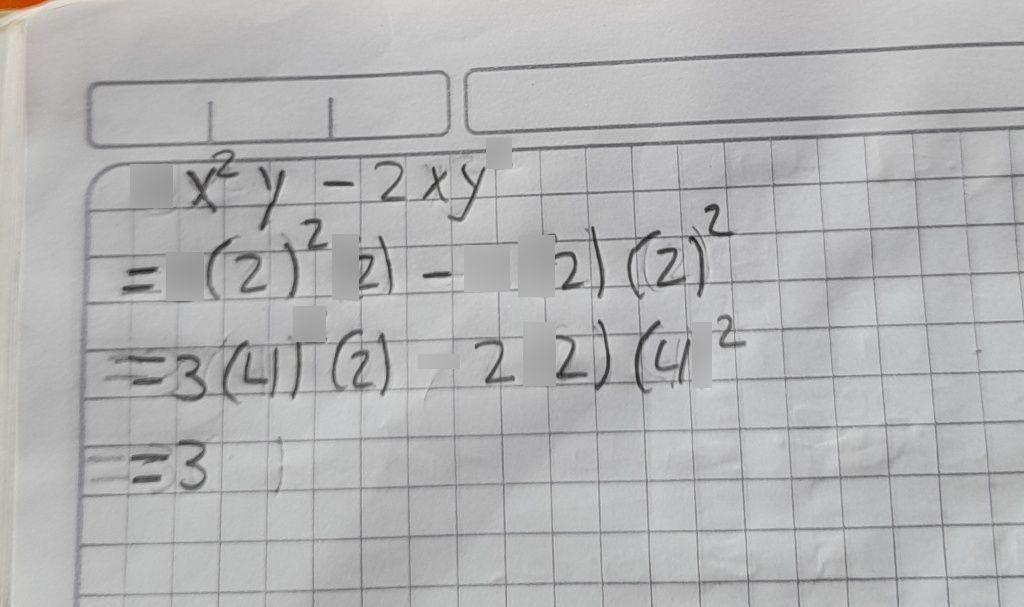 x² y - 2 x y
= (2)² 2) - 2) (2)²
= 3 (4) (2) 2 2) (4) ²
= 3